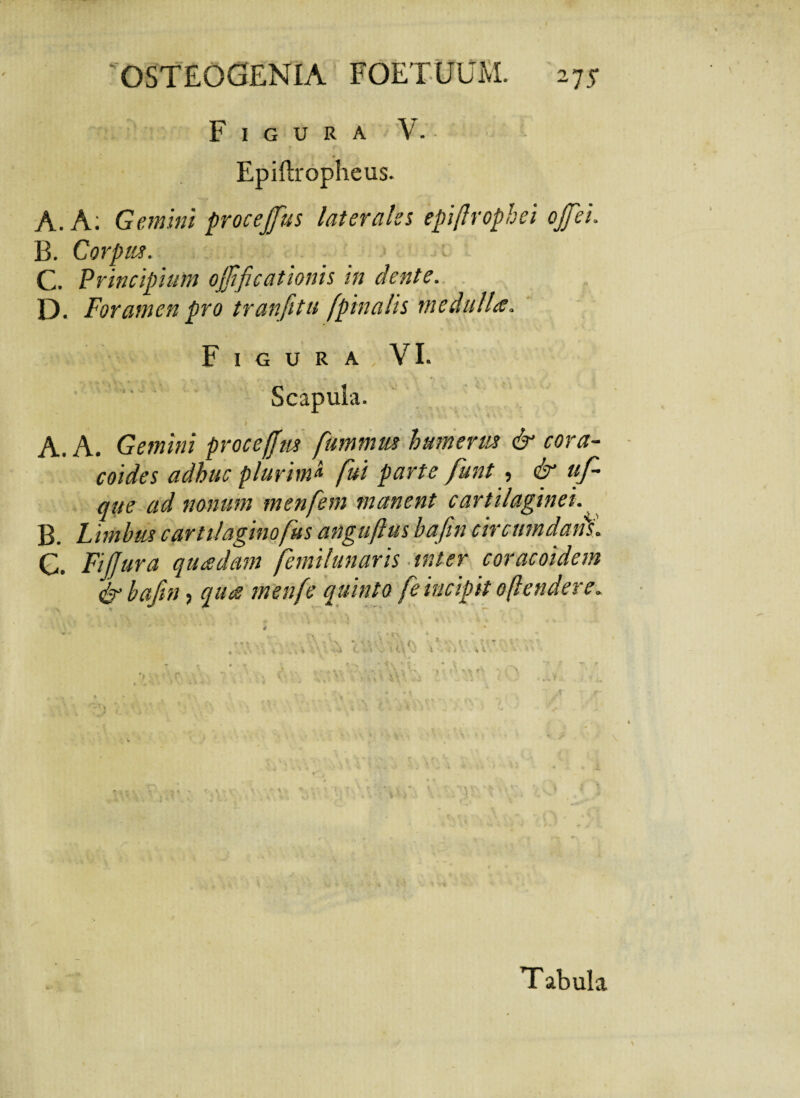 OSTEOGENIA FOETUUM. 275
FIGURA V.
Epiſtropheus.
A. A. Gemini proceſſus laterales epiſtrophei oſſei.
B. Corpus.
C. Principium oſſificationis in dente.
D. Foramen pro tranſitu ſpinalis medullæ.
FIGURA VI.
Scapula.
A. A. Gemini proceſſus ſummus humerus & cora-
coides adhuc plurimâ ſui parte ſunt, & uſ-
que ad nonum menſem manent cartilaginei.
B. Limbus cartilaginoſus anguſtus baſin circumdans.
C. Fiſſura quædam ſemilunaris inter coracoidem
& baſin, quæ menſe quinto ſe incipit oſtendere.
Tabula